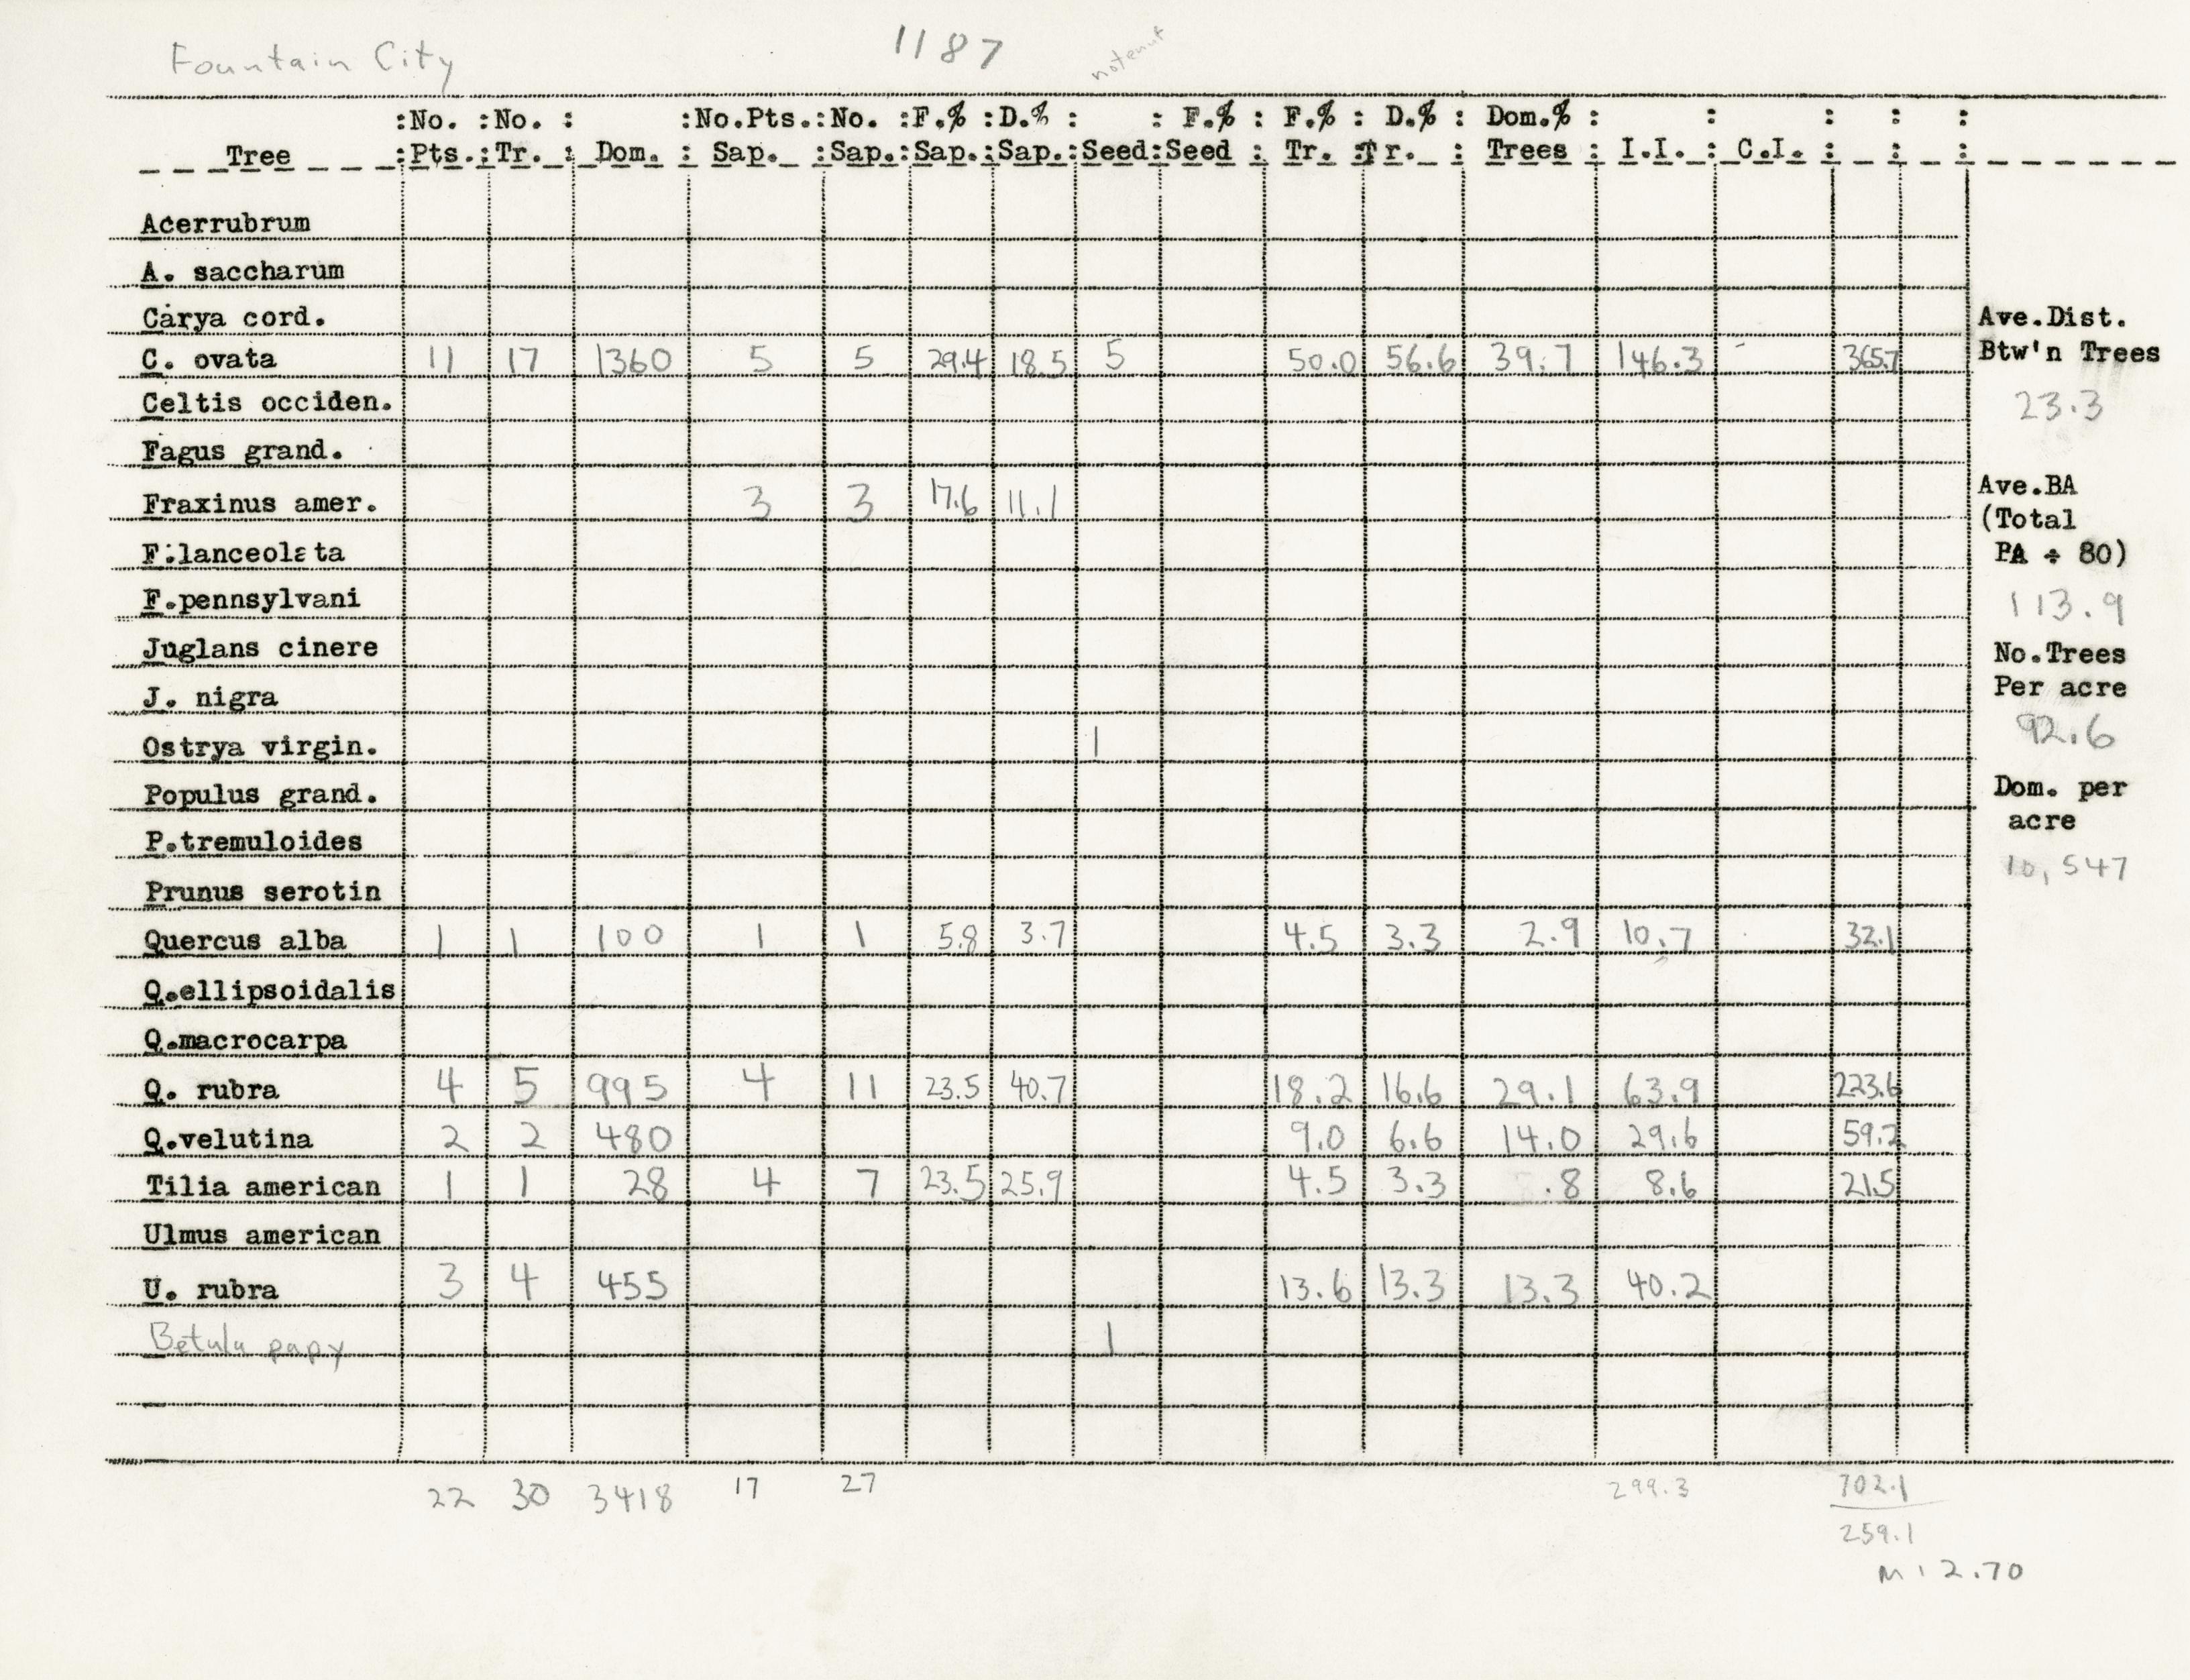 Fountain City 1187 notenut
:No. :No. : :No.Pts.:No. :F.% :D.% : : F.% : F.% : D.% : Dom.% : : : : :
Tree :Pts.:Tr. : Dom. : Sap. :Sap.:Sap.:Sap.:Seed:Seed : Tr. :Tr. : Trees : I.I. : C.I. : : :
Acerrubrum
A. saccharum
Carya cord.
Ave.Dist.
C. ovata 11 17 1360 5 5 29.4 18.5 5 50.0 56.6 39.7 146.3 - 365.7
Btw'n Trees
Celtis occiden.
23.3
Fagus grand.
Ave.BA
Fraxinus amer. 3 3 17.6 11.1
(Total
F.lanceolata
PA ÷ 80)
F.pennsylvani
113.9
Juglans cinere
No.Trees
J. nigra
Per acre
Ostrya virgin. 1
92.6
Populus grand.
Dom. per
P.tremuloides
acre
10,547
Prunus serotin
Quercus alba 1 1 100 1 1 5.8 3.7 4.5 3.3 2.9 10.7 32.1
Q.ellipsoidalis
Q.macrocarpa
Q. rubra 4 5 995 4 11 23.5 40.7 18.2 16.6 29.1 63.9 223.6
Q.velutina 2 2 480 9.0 6.6 14.0 29.6 59.2
Tilia american 1 1 28 4 7 23.5 25.9 4.5 3.3 .8 8.6 21.5
Ulmus american
U. rubra 3 4 455 13.6 13.3 13.3 40.2
Betula papy 1
22 30 3418 17 27 299.3 702.1
259.1
M 1 2.70